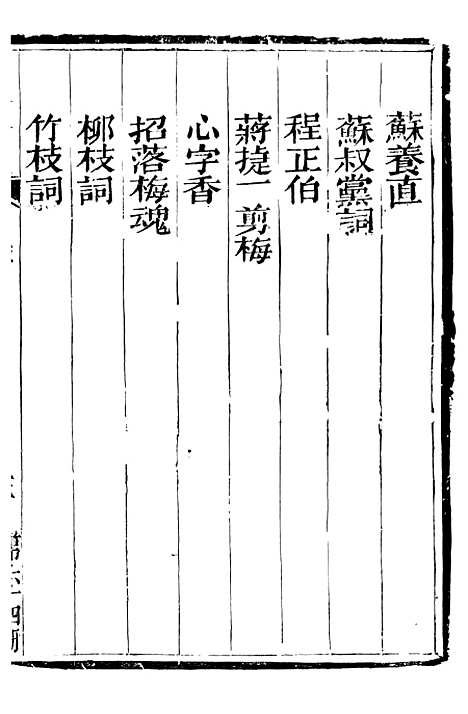 蘇養直
蘇叔黨詞
程正伯
蔣捷一剪梅
心字香
招落梅魂
柳枝詞
竹枝詞